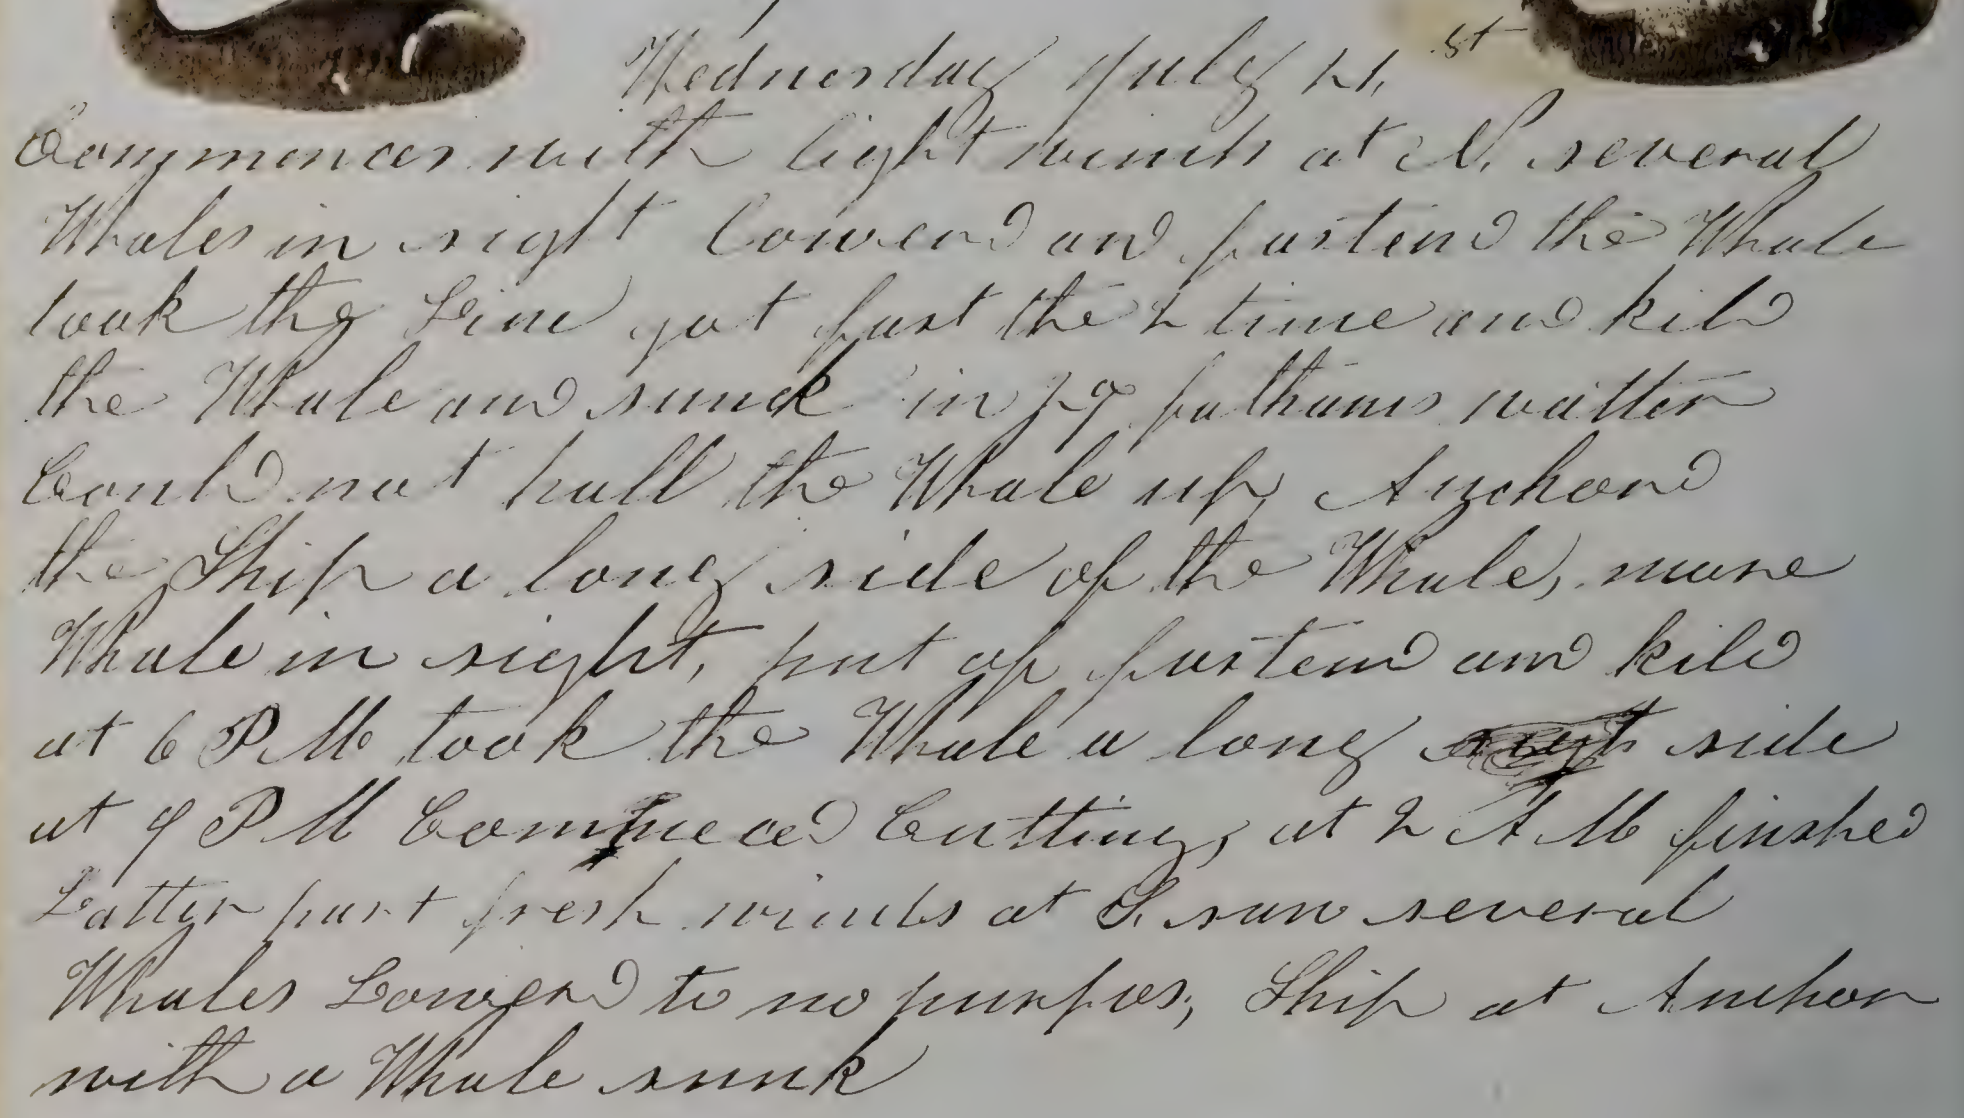 Wednesday July 21, st
Commences with light winds at N. several
Whales in sight Lowerd and fastend the Whale
took the Line got fast the 2 time and kild
the Whale and sunck in 29 fathoms watter
Could not hall the Whale up, Anchord
the Ship a long side of the Whale, more
Whale in sight, put of fastend and kild
at 6 PM took the Whale a long side
at 9 PM Commeced Cutting, at 2 AM finshed
Latter part fresh winds at S. saw several
Whales Lowerd to no purpos, Ship at Anchor
with a Whale sunk